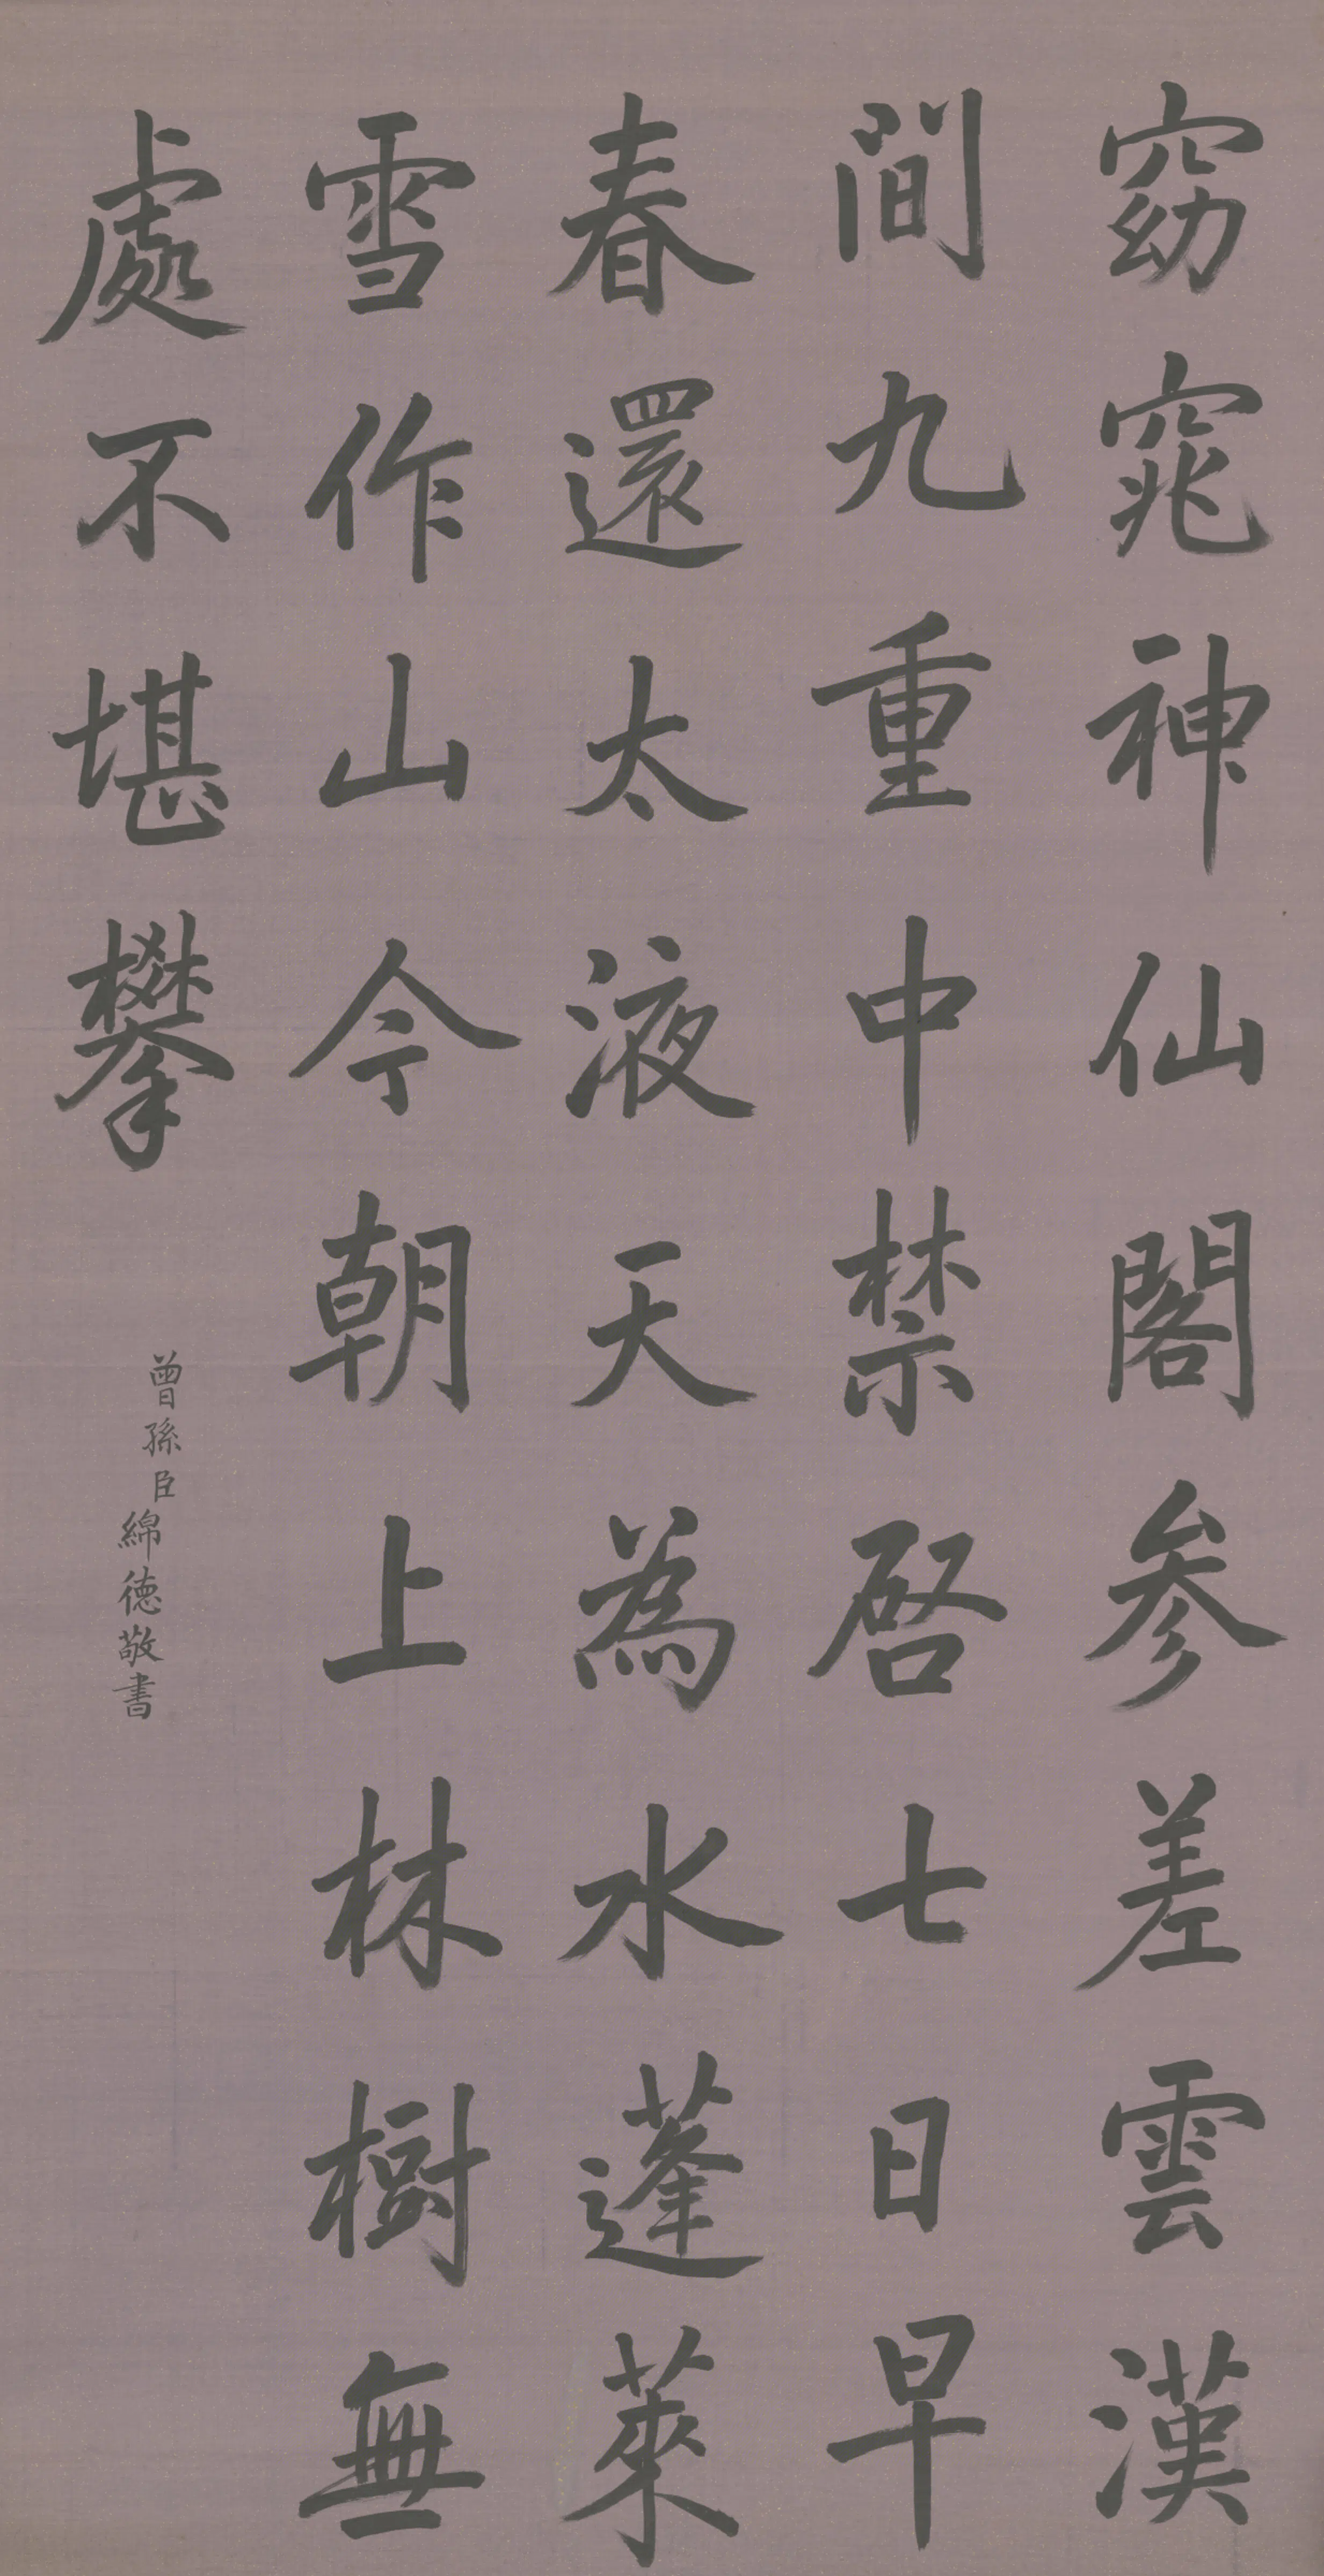 窈窕神仙閣參差雲漢
間九重中禁啓七日早
春還太液天為水蓬萊
雪作山今朝上林樹無
處不堪攀
曾孫臣綿德敬書